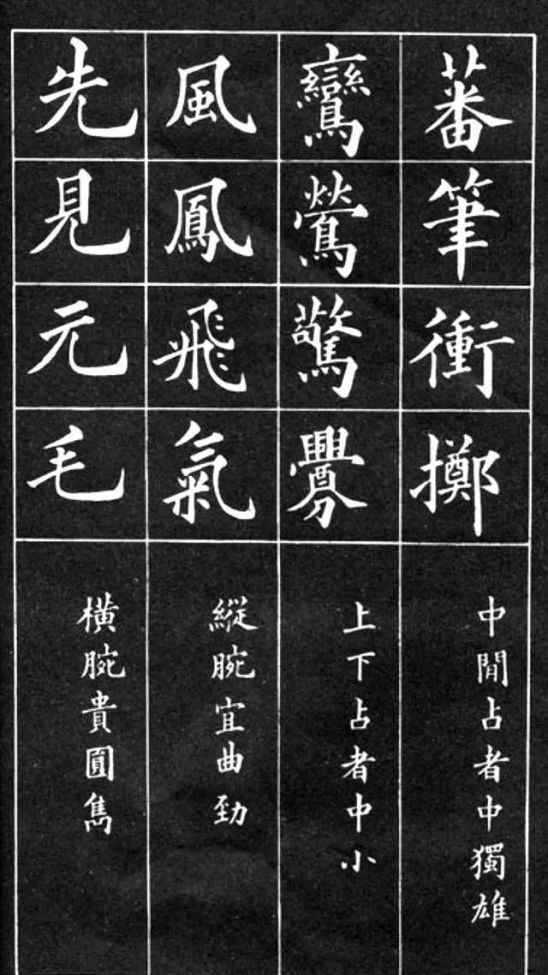 蕃筆衝擲
中間占者中獨雄
鸞鶯驚釁
上下占者中小
風鳳飛氣
縱腕宜曲勁
先見元毛
橫腕貴圓雋